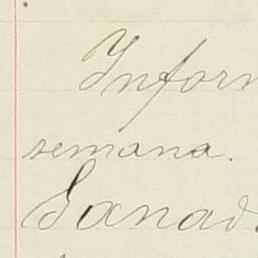 Inform
semana.
Ganad